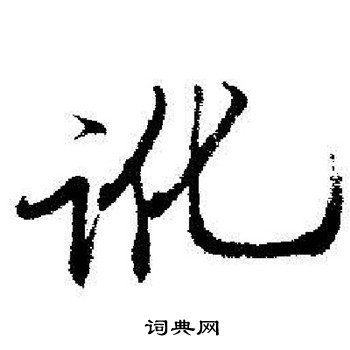 讹
词典网